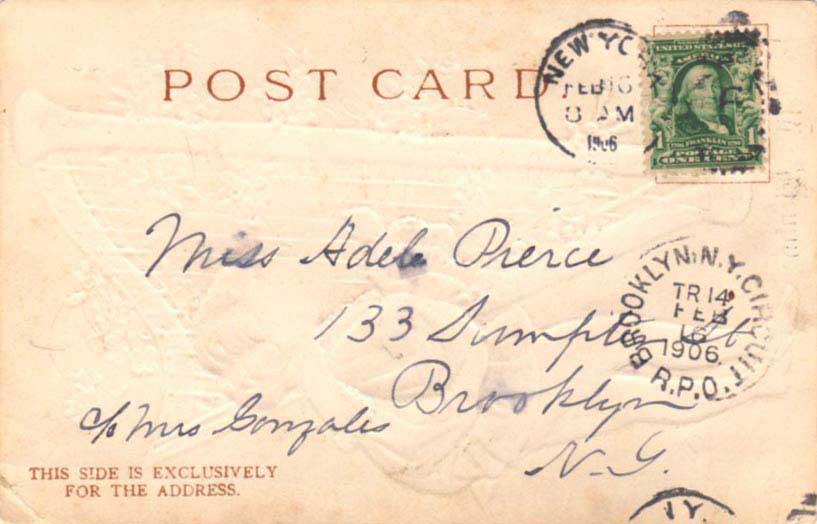 POST CARD
NEW YO
FEB 16
8 AM
1906
UNITED STATES OF
AMERICA
1 FRANKLIN 1
POSTAGE
ONE CENT
Miss Adele Pierce
133 Sumpter St
Brooklyn
N.Y.
c/o Mrs Gonzales
BROOKLYN, N.Y. CIRCUIT
TR 14
FEB
16
1906
R.P.O.
THIS SIDE IS EXCLUSIVELY
FOR THE ADDRESS.